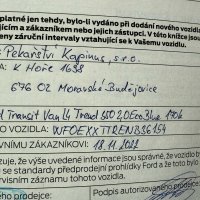 platné jen tehdy, bylo-li vydáno při dodání nového vozidla
jícím a zákazníkem nebo jejich zástupci. V této knížce jsou
eny záruční intervaly vztahující se k Vašemu vozidlu.
Pekařství Kapinus, s.r.o.
K Hoře 1658
676 02 Moravské Budějovice
Transit Van L4 Trend 350 2,0 EcoBlue 170k
O VOZIDLA: WF0EXXTTREN
VNÍMU ZÁKAZNÍKOVI: 18.11.2022
zuje, že výše uvedené informace jsou správné, že vozidlo b
se standardy předprodejní prohlídky Ford a že toto
rvisním záznamu tohoto vozidla.
ého prodejce:
Podpis autorizovaného prodejce